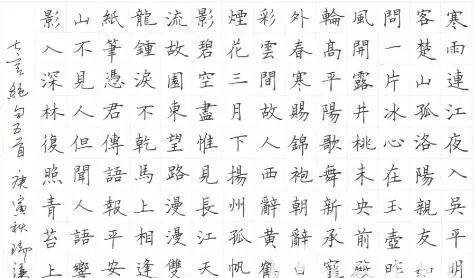 寒雨連江夜入吳平明
客楚山孤洛陽親友如
問一片冰心在玉壺昨
風開露井桃未央前殿
輪高平陽歌舞新承寵
外春寒賜錦袍朝辭白
彩雲間故人西辭黃鶴
煙花三月下揚州孤帆
影碧空盡惟見長江天
流故園東望路漫漫雙
龍鍾淚不乾馬上相逢
紙筆憑君傳語報平安
山不見人但聞人語響
影入深林復照青苔上
七言絕句五首 庚寅秋瑞